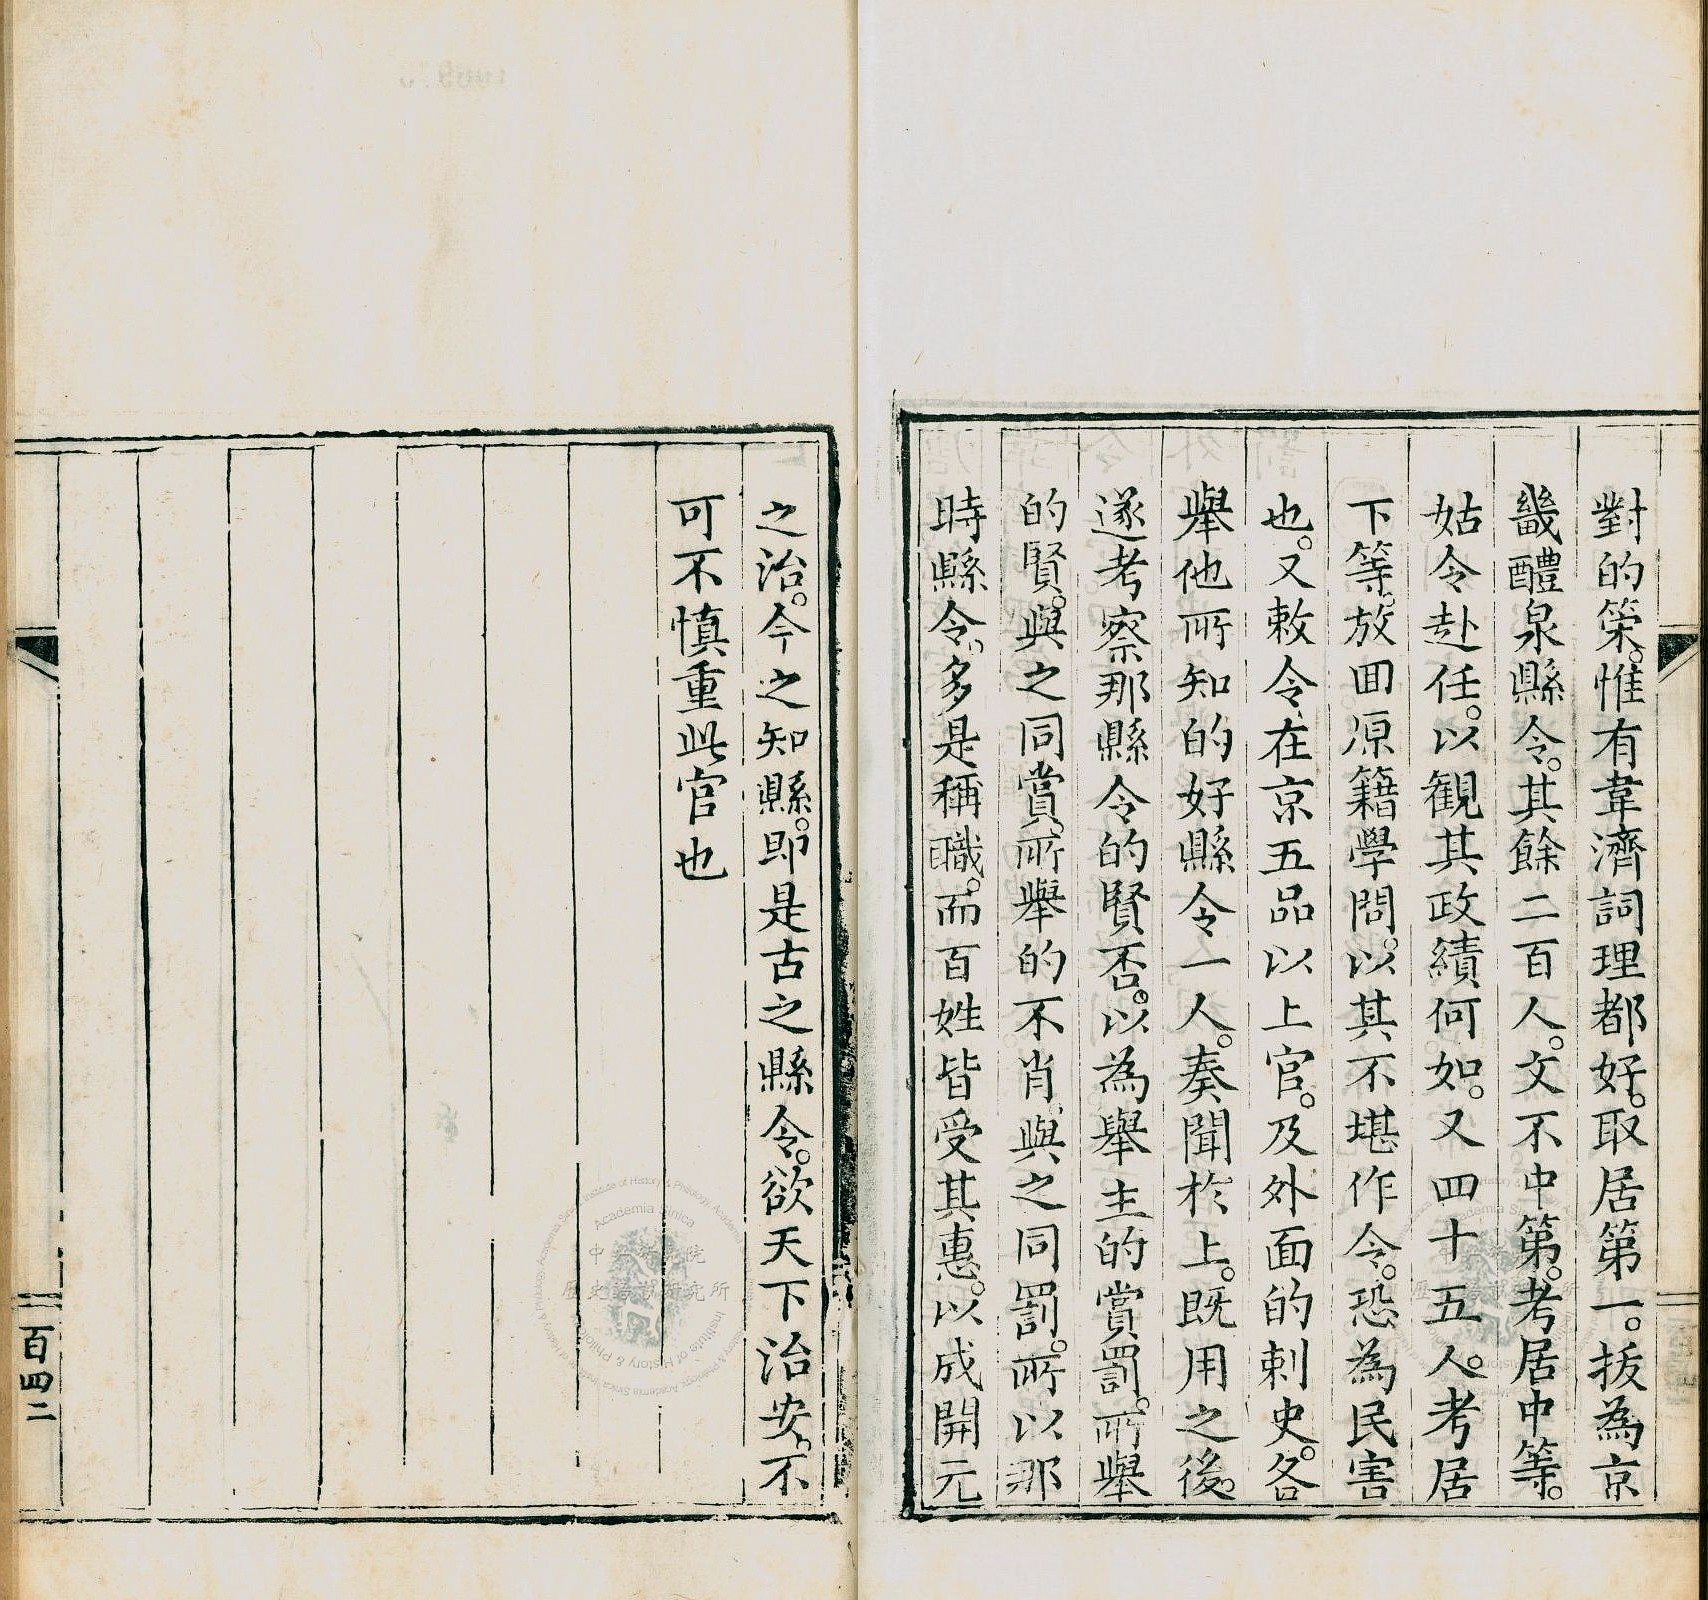 對的策。惟有韋濟詞理都好。取居第一。拔為京
畿醴泉縣令。其餘二百人。文不中第。考居中等。
姑令赴任。以觀其政績何如。又四十五人。考居
下等。放回原籍學問。以其不堪作令。恐為民害
也。又敕令在京五品以上官。及外面的刺史。各
舉他所知的好縣令一人。奏聞於上。既用之後。
遂考察那縣令的賢否。以為舉主的賞罰。所舉
的賢。與之同賞。所舉的不肖。與之同罰。所以那
時縣令。多是稱職。而百姓皆受其惠。以成開元
之治。今之知縣。即是古之縣令。欲天下治安。不
可不慎重此官也
百四二
中央研究院
歷史語言研究所
Academia Sinica
Institute of History & Philology